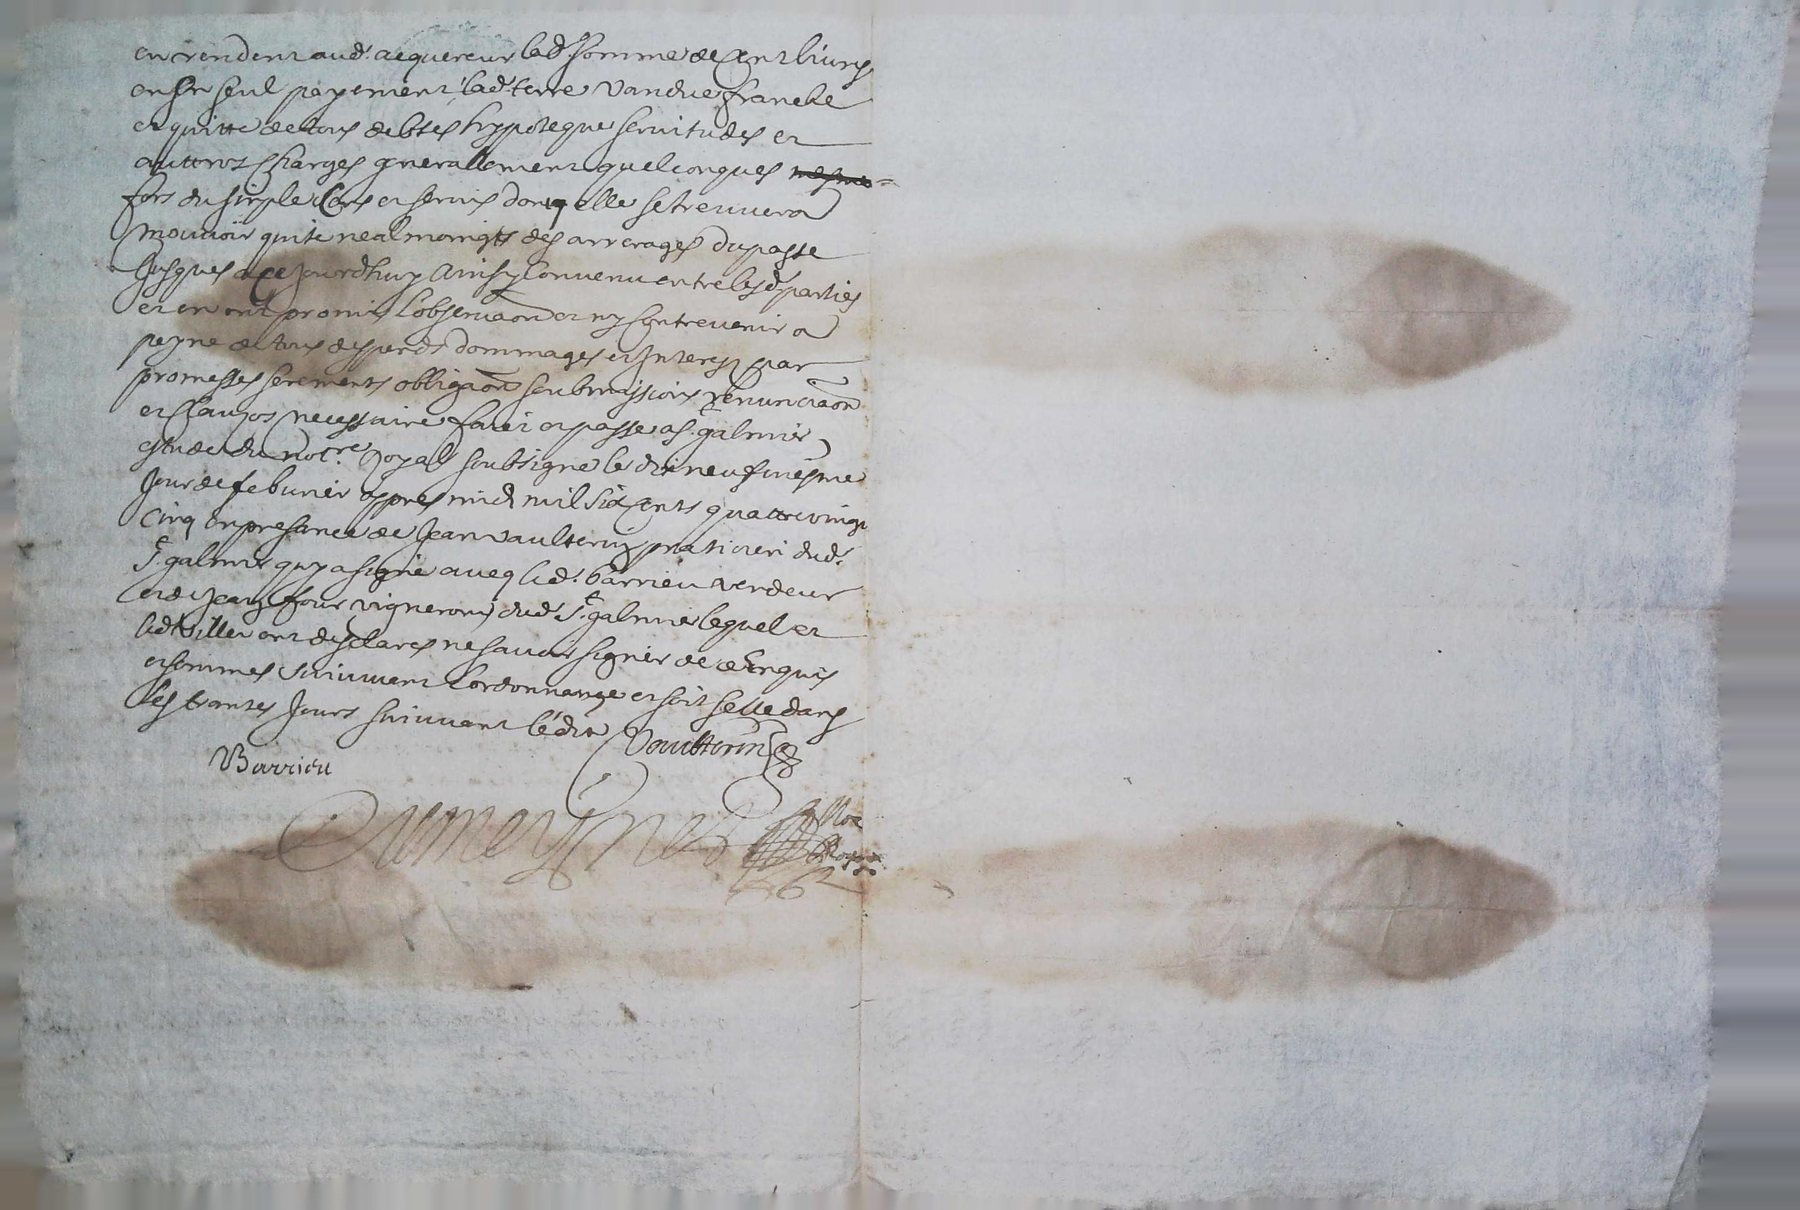 en rendent aud. acquereur lad. somme de Cent livres
en un seul payement, lad. terre vandue franche
et quitte de tous debtes hypoteque servitudes et
auttres Charges generallement quelconques
fors du simple Cens et servis dont elle se treuvera
mouvoir quite nealmoingts des arrerages du passe
Jusques a ce Jourdhuy Ainsy Convenu entre lesd. parties
et en ont promis l'observaon et ny Contrevenir a
peyne de tous despends dommages et Interests par
promesses serements obligaon soubmissions renunciaon
et Clauzes necessaire faict et passe a St. galmier
estude du notre. Royal soubsigne le dix neufviesme
Jour de febvrier appres midi mil six Cents quattre vingt
Cinq en presance de Jean vaulterin praticien dud.
St. galmier quy a signe aveq led. Barrieu vendeur
et de Jean four vigneron dud. St. galmier lequel et
led. ont desclares ne savoir signer de ce Enquis
et sommes suivvant l'ordonnance et soit selle dans
les trantes Jours suivvant l'édit
Vaultterin
Barrieu